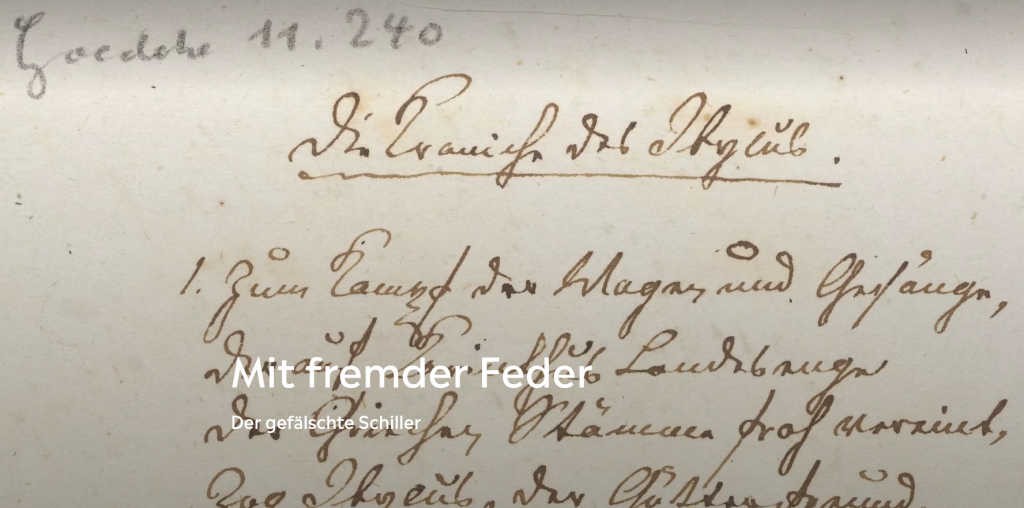 Goedeke 11. 240
Die Kraniche des Ibycus.
1. Zum Kampf der Wagen und Gesänge,
Der auf Korinthus Landesenge
Mit fremder Feder
Der gefälschte Schiller
Der Griechen Stämme froh vereint,
Zog Ibycus, der Götterfreund.